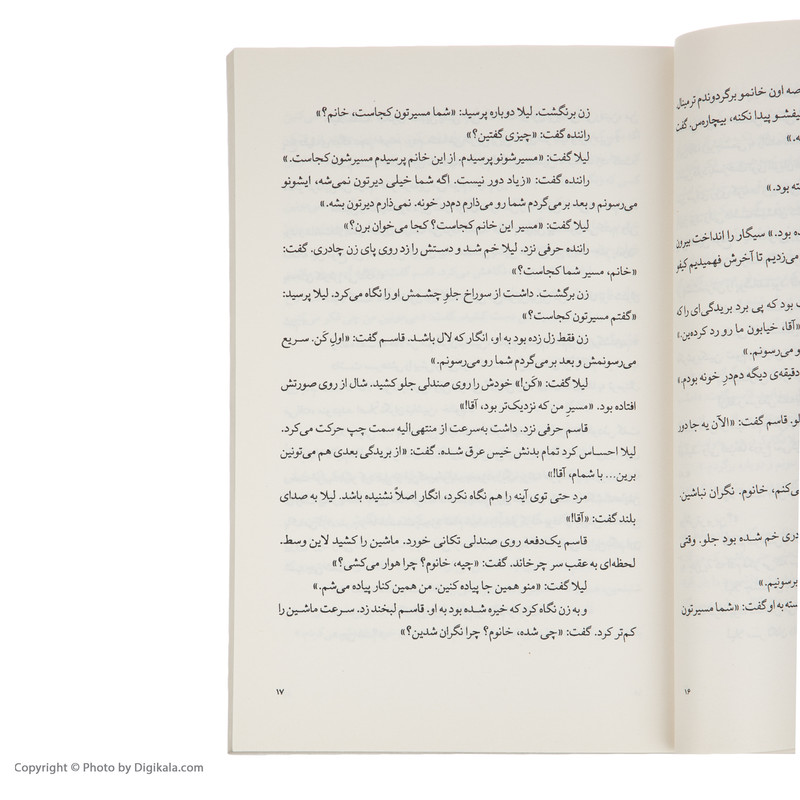 صه اون خانمو برگردوندم ترمینال
یفشو پیدا نکنه، بیچاره‌س. گفت
ه.»
ته بود.»
ده بود.» سیگار را انداخت بیرون
می‌زدیم تا آخرش فهمیدیم کیفو
ب بود که پی برد بریدگی‌ای را که
«آقا، خیابون ما رو رد کرده‌ین.»
و می‌رسونم.»
دقیقه‌ی دیگه دم‌درِ خونه بودم.»
لو. قاسم گفت: «الآن یه جا دور
ی‌کنم، خانوم. نگران نباشین.
دری خم شده بود جلو. وقتی
برسونیم.»
سته به او گفت: «شما مسیرتون
۱۶
زن برنگشت. لیلا دوباره پرسید: «شما مسیرتون کجاست، خانم؟»
راننده گفت: «چیزی گفتین؟»
لیلا گفت: «مسیرشونو پرسیدم. از این خانم پرسیدم مسیرشون کجاست.»
راننده گفت: «زیاد دور نیست. اگه شما خیلی دیرتون نمی‌شه، ایشونو
می‌رسونم و بعد برمی‌گردم شما رو می‌ذارم دم‌در خونه. نمی‌ذارم دیرتون بشه.»
لیلا گفت: «مسیر این خانم کجاست؟ کجا می‌خوان برن؟»
راننده حرفی نزد. لیلا خم شد و دستش را زد روی پای زن چادری. گفت:
«خانم، مسیر شما کجاست؟»
زن برگشت. داشت از سوراخ جلوِ چشمش او را نگاه می‌کرد. لیلا پرسید:
«گفتم مسیرتون کجاست؟»
زن فقط زل زده بود به او، انگار که لال باشد. قاسم گفت: «اولِ کَن. سریع
می‌رسونمش و بعد برمی‌گردم شما رو می‌رسونم.»
لیلا گفت: «کَن!» خودش را روی صندلی جلو کشید. شال از روی صورتش
افتاده بود. «مسیرِ من که نزدیک‌تر بود، آقا!»
قاسم حرفی نزد. داشت به‌سرعت از منتهی‌الیه سمت چپ حرکت می‌کرد.
لیلا احساس کرد تمام بدنش خیس عرق شده. گفت: «از بریدگی بعدی هم می‌تونین
برین... با شمام، آقا!»
مرد حتی توی آینه را هم نگاه نکرد، انگار اصلاً نشنیده باشد. لیلا به صدای
بلند گفت: «آقا!»
قاسم یک‌دفعه روی صندلی تکانی خورد. ماشین را کشید لاین وسط.
لحظه‌ای به عقب سر چرخاند. گفت: «چیه، خانوم؟ چرا هوار می‌کشی؟»
لیلا گفت: «منو همین جا پیاده کنین. من همین کنار پیاده می‌شم.»
و به زن نگاه کرد که خیره شده بود به او. قاسم لبخند زد. سرعت ماشین را
کم‌تر کرد. گفت: «چی شده، خانوم؟ چرا نگران شدین؟»
۱۷
Copyright © Photo by Digikala.com